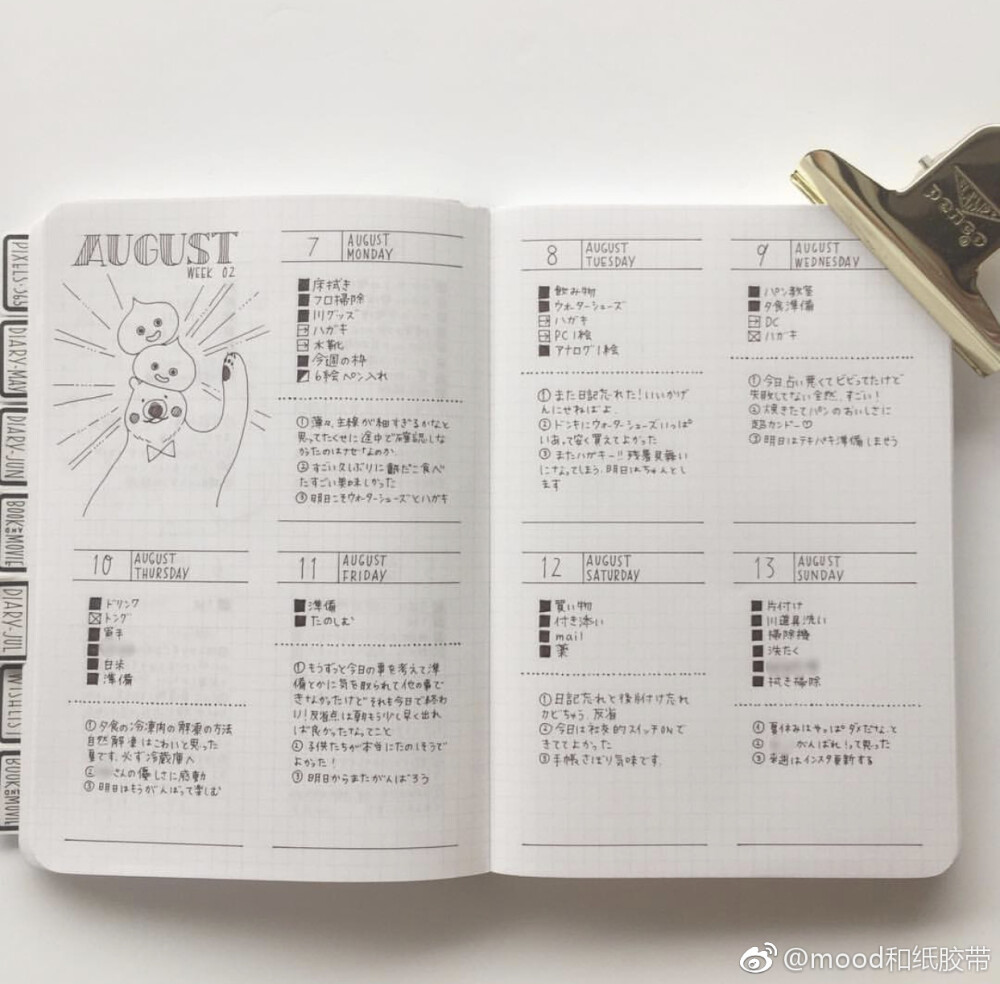 AUGUST
WEEK 02
7 AUGUST MONDAY
床拭き
フロ掃除
川グッズ
ハガキ
水靴
今週の枠
6絵ペン入れ
①薄々、主線が細すぎるかなと
思ってたくせに途中で確認しな
かったのはナゼなのか
②すごい久しぶりに餅だこ食べ
たすごい美味しかった
③明日こそウォーターシューズとハガキ
8 AUGUST TUESDAY
飲み物
ウォーターシューズ
ハガキ
PC1絵
アナログ1絵
①また日記忘れた!いいかげ
んにせねばよ.
②ドンキにウォーターシューズいっぱ
いあって安く買えてよかった
③またハガキー!!残暑見舞い
になってしまう.明日はちゃんとし
ます
9 AUGUST WEDNESDAY
パン教室
夕食準備
DC
ハガキ
①今日占い悪くてビビってたけで
失敗してない全然.すごい!
②焼きたてパンのおいしさに
超カンドー♡
③明日はテキパキ準備しませう
10 AUGUST THURSDAY
ドリンク
トング
軍手
白米
準備
①夕食の冷凍肉の解凍の方法
自然解凍はこわいと思った
夏です.必ず冷蔵庫へ
②さんの優しさに感動
③明日はもうがんばって楽しむ
11 AUGUST FRIDAY
準備
たのしむ
①もうずっと今日の事を考えて準
備とかに気を取られて他の事で
きなかったけどそれも今日で終わ
り!反省点は朝もう少し早く出れ
ば良かったなってこと
②子供たちが本当にたのしそうで
よかった!
③明日からまたがんばろう
12 AUGUST SATURDAY
買い物
付き添い
mail
薬
①日記忘れと後片付け忘れ
②今日は社交的スイッチONで
きててよかった
③手帳さぼり気味です.
13 AUGUST SUNDAY
片付け
川道具洗い
掃除機
洗たく
拭き掃除
①夏休みはやっぱダメだなっと
②がんばれ!って思った
③来週はインスタ更新する
PIXELS-365
DIARY-MAY
DIARY-JUN
BOOK AND MOVIE
DIARY-JUL
WISHLIST
BOOK AND MOVIE
@mood和纸胶带